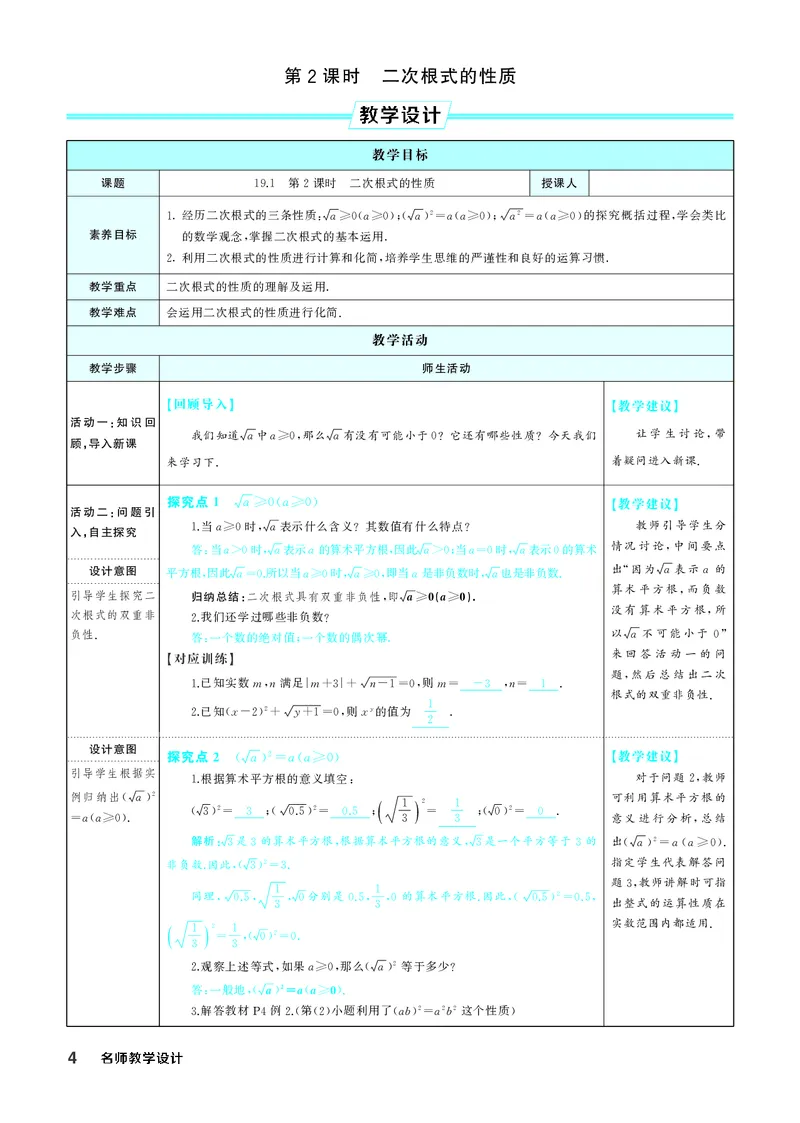 第2课时 二次根式的性质
教学设计
教学目标
课题 19.1 第2课时 二次根式的性质 授课人
素养目标
1. 经历二次根式的三条性质:√a≥0(a≥0);(√a)²=a(a≥0);√a²=a(a≥0)的探究概括过程,学会类比
的数学观念,掌握二次根式的基本运用.
2. 利用二次根式的性质进行计算和化简,培养学生思维的严谨性和良好的运算习惯.
教学重点 二次根式的性质的理解及运用.
教学难点 会运用二次根式的性质进行化简.
教学活动
教学步骤 师生活动
活动一:知识回
顾,导入新课
【回顾导入】
我们知道√a中a≥0,那么√a有没有可能小于0?它还有哪些性质?今天我们
来学习下.
【教学建议】
让学生讨论,带
着疑问进入新课.
活动二:问题引
入,自主探究
设计意图
引导学生探究二
次根式的双重非
负性.
探究点1 √a≥0(a≥0)
1.当a≥0时,√a表示什么含义?其数值有什么特点?
答:当a>0时,√a表示a的算术平方根,因此√a>0;当a=0时,√a表示0的算术
平方根,因此√a=0.所以当a≥0时,√a≥0,即当a是非负数时,√a也是非负数.
归纳总结:二次根式具有双重非负性,即√a≥0(a≥0).
2.我们还学过哪些非负数?
答:一个数的绝对值;一个数的偶次幂.
【对应训练】
1.已知实数m,n满足|m+3|+√n-1=0,则m= -3 ,n= 1 .
2.已知(x-2)²+√y+1=0,则xʸ的值为 1/2 .
【教学建议】
教师引导学生分
情况讨论,中间要点
出“因为√a表示a的
算术平方根,而负数
没有算术平方根,所
以√a不可能小于0”
来回答活动一的问
题,然后总结出二次
根式的双重非负性.
设计意图
引导学生根据实
例归纳出(√a)²
=a(a≥0).
探究点2 (√a)²=a(a≥0)
1.根据算术平方根的意义填空:
(√3)²= 3 ;(√0.5)²= 0.5 ;(√1/3)²= 1/3 ;(√0)²= 0 .
解析:√3是3的算术平方根,根据算术平方根的意义,√3是一个平方等于3的
非负数.因此,(√3)²=3.
同理,√0.5,√1/3,√0分别是0.5,1/3,0的算术平方根.因此,(√0.5)²=0.5,
(√1/3)²=1/3,(√0)²=0.
2.观察上述等式,如果a≥0,那么(√a)²等于多少?
答:一般地,(√a)²=a(a≥0).
3.解答教材P4例2.(第(2)小题利用了(ab)²=a²b²这个性质)
【教学建议】
对于问题2,教师
可利用算术平方根的
意义进行分析,总结
出(√a)²=a(a≥0).
指定学生代表解答问
题3,教师讲解时可指
出整式的运算性质在
实数范围内都适用.
4 名师教学设计